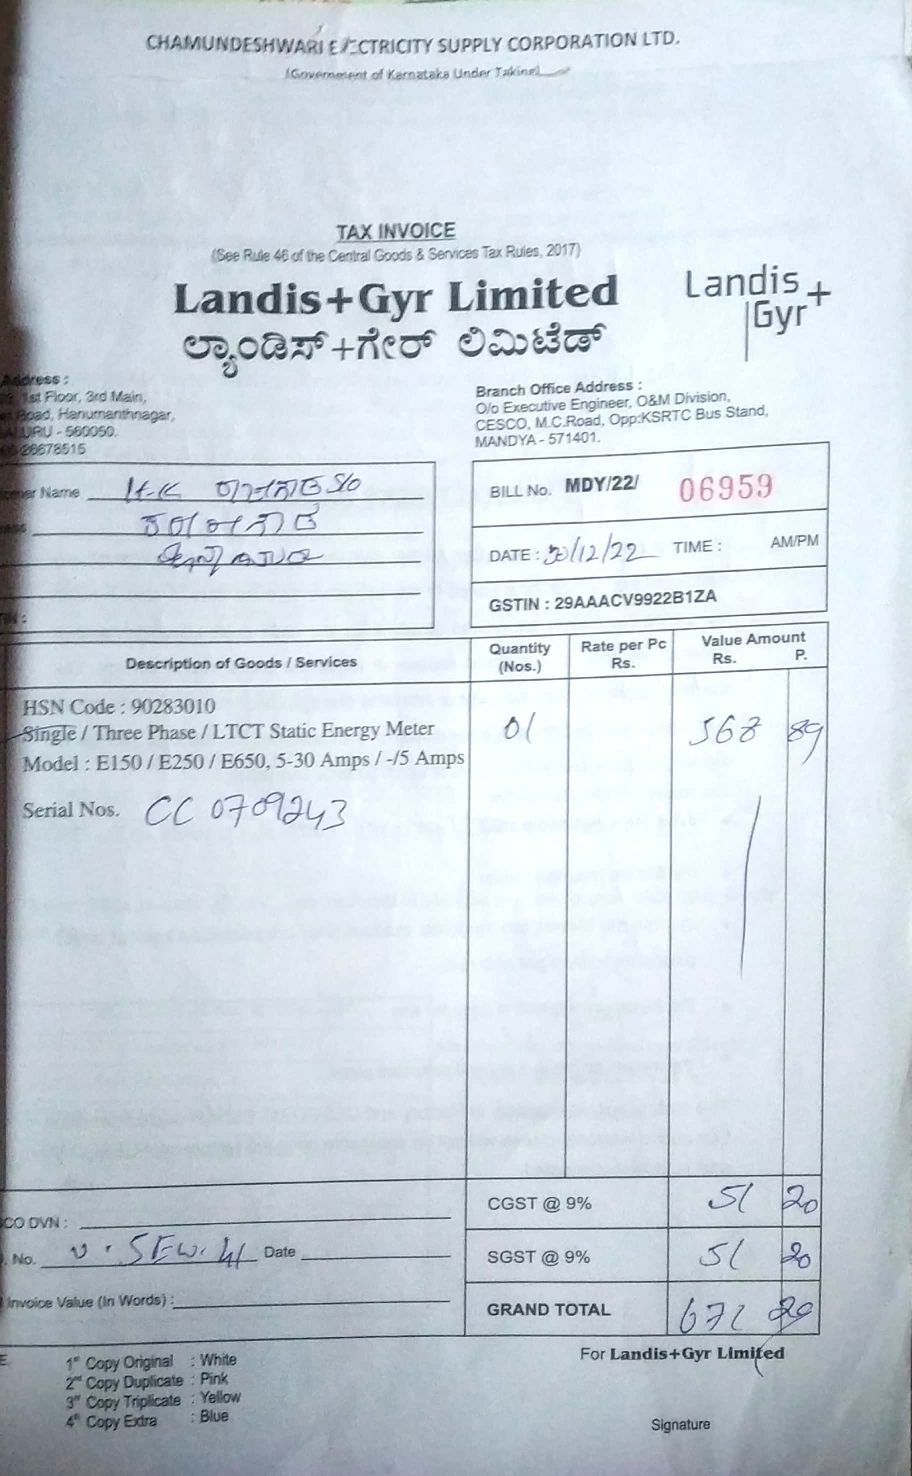 CHAMUNDESHWARI ELECTRICITY SUPPLY CORPORATION LTD.
(Government of Karnataka Under Taking)
TAX INVOICE
(See Rule 46 of the Central Goods & Services Tax Rules, 2017)
Landis+Gyr Limited
ಲ್ಯಾಂಡಿಸ್+ಗೇರ್ ಲಿಮಿಟೆಡ್
Landis+
Gyr
Address :
1st Floor, 3rd Main,
Road, Hanumanthnagar,
- 560050.
26678515
Branch Office Address :
O/o Executive Engineer, O&M Division,
CESCO, M.C.Road, Opp:KSRTC Bus Stand,
MANDYA - 571401.
Name H.K
BILL No. MDY/22/ 06959
DATE : 30/12/22 TIME : AM/PM
GSTIN : 29AAACV9922B1ZA
Description of Goods / Services
Quantity (Nos.)
Rate per Pc Rs.
Value Amount Rs. P.
HSN Code : 90283010
Single / Three Phase / LTCT Static Energy Meter 01 568 89
Model : E150 / E250 / E650, 5-30 Amps / -/5 Amps
Serial Nos. CC 0709243
CGST @ 9% 51 20
CO DVN :
No. Date
SGST @ 9% 51 20
Invoice Value (In Words) :
GRAND TOTAL 671 29
1st Copy Original : White
2nd Copy Duplicate : Pink
3rd Copy Triplicate : Yellow
4th Copy Extra : Blue
For Landis+Gyr Limited
Signature